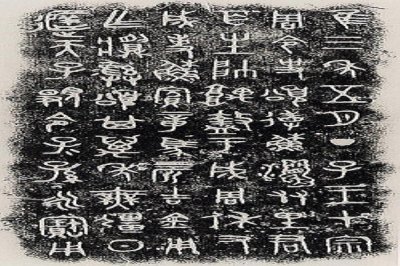 隹三年五月丁子王才宗
周令史頌省穌友里君
百生帥盩于成周休又
成事穌賓章馬四匹吉金用
乍彝頌其萬年無疆日
天子令子孫永寶用